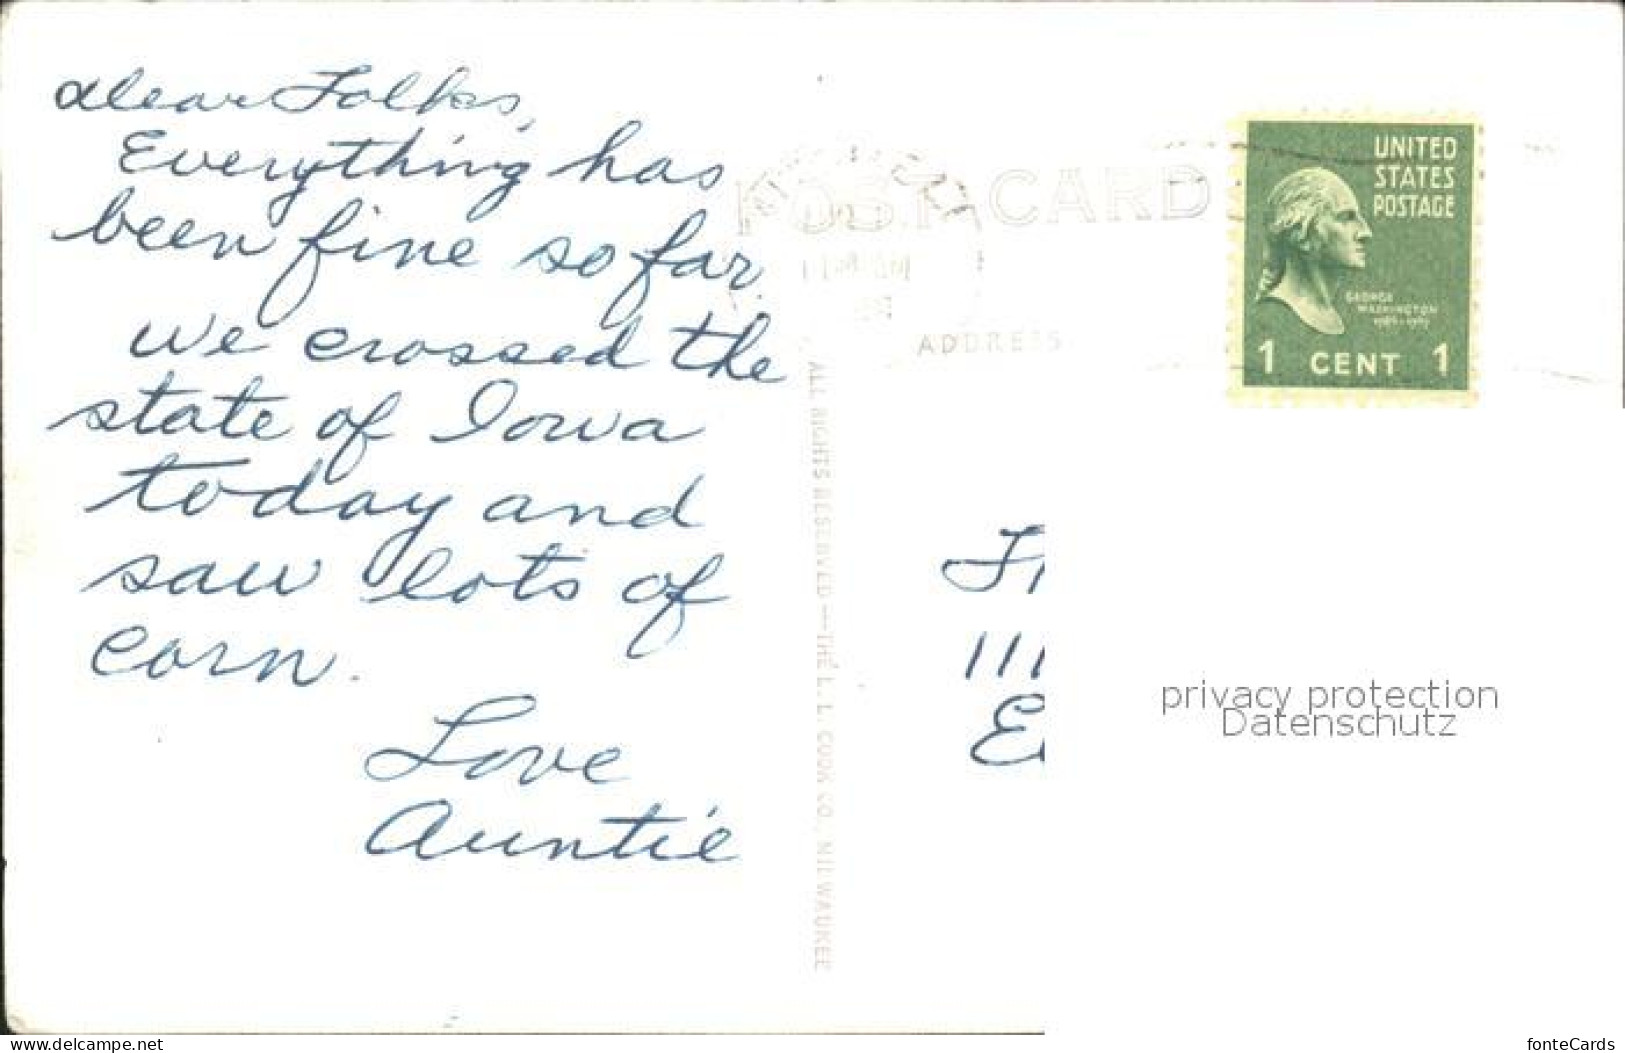 Dear Folks,
Everything has
been fine so far
we crossed the
state of Iowa
today and
saw lots of
corn.
Love
Auntie
POST CARD
ADDRESS
ALL RIGHTS RESERVED—THE L. L. COOK CO., MILWAUKEE
UNITED
STATES
POSTAGE
GEORGE
WASHINGTON
1 CENT 1
111
privacy protection
Datenschutz
www.delcampe.net
fonteCards